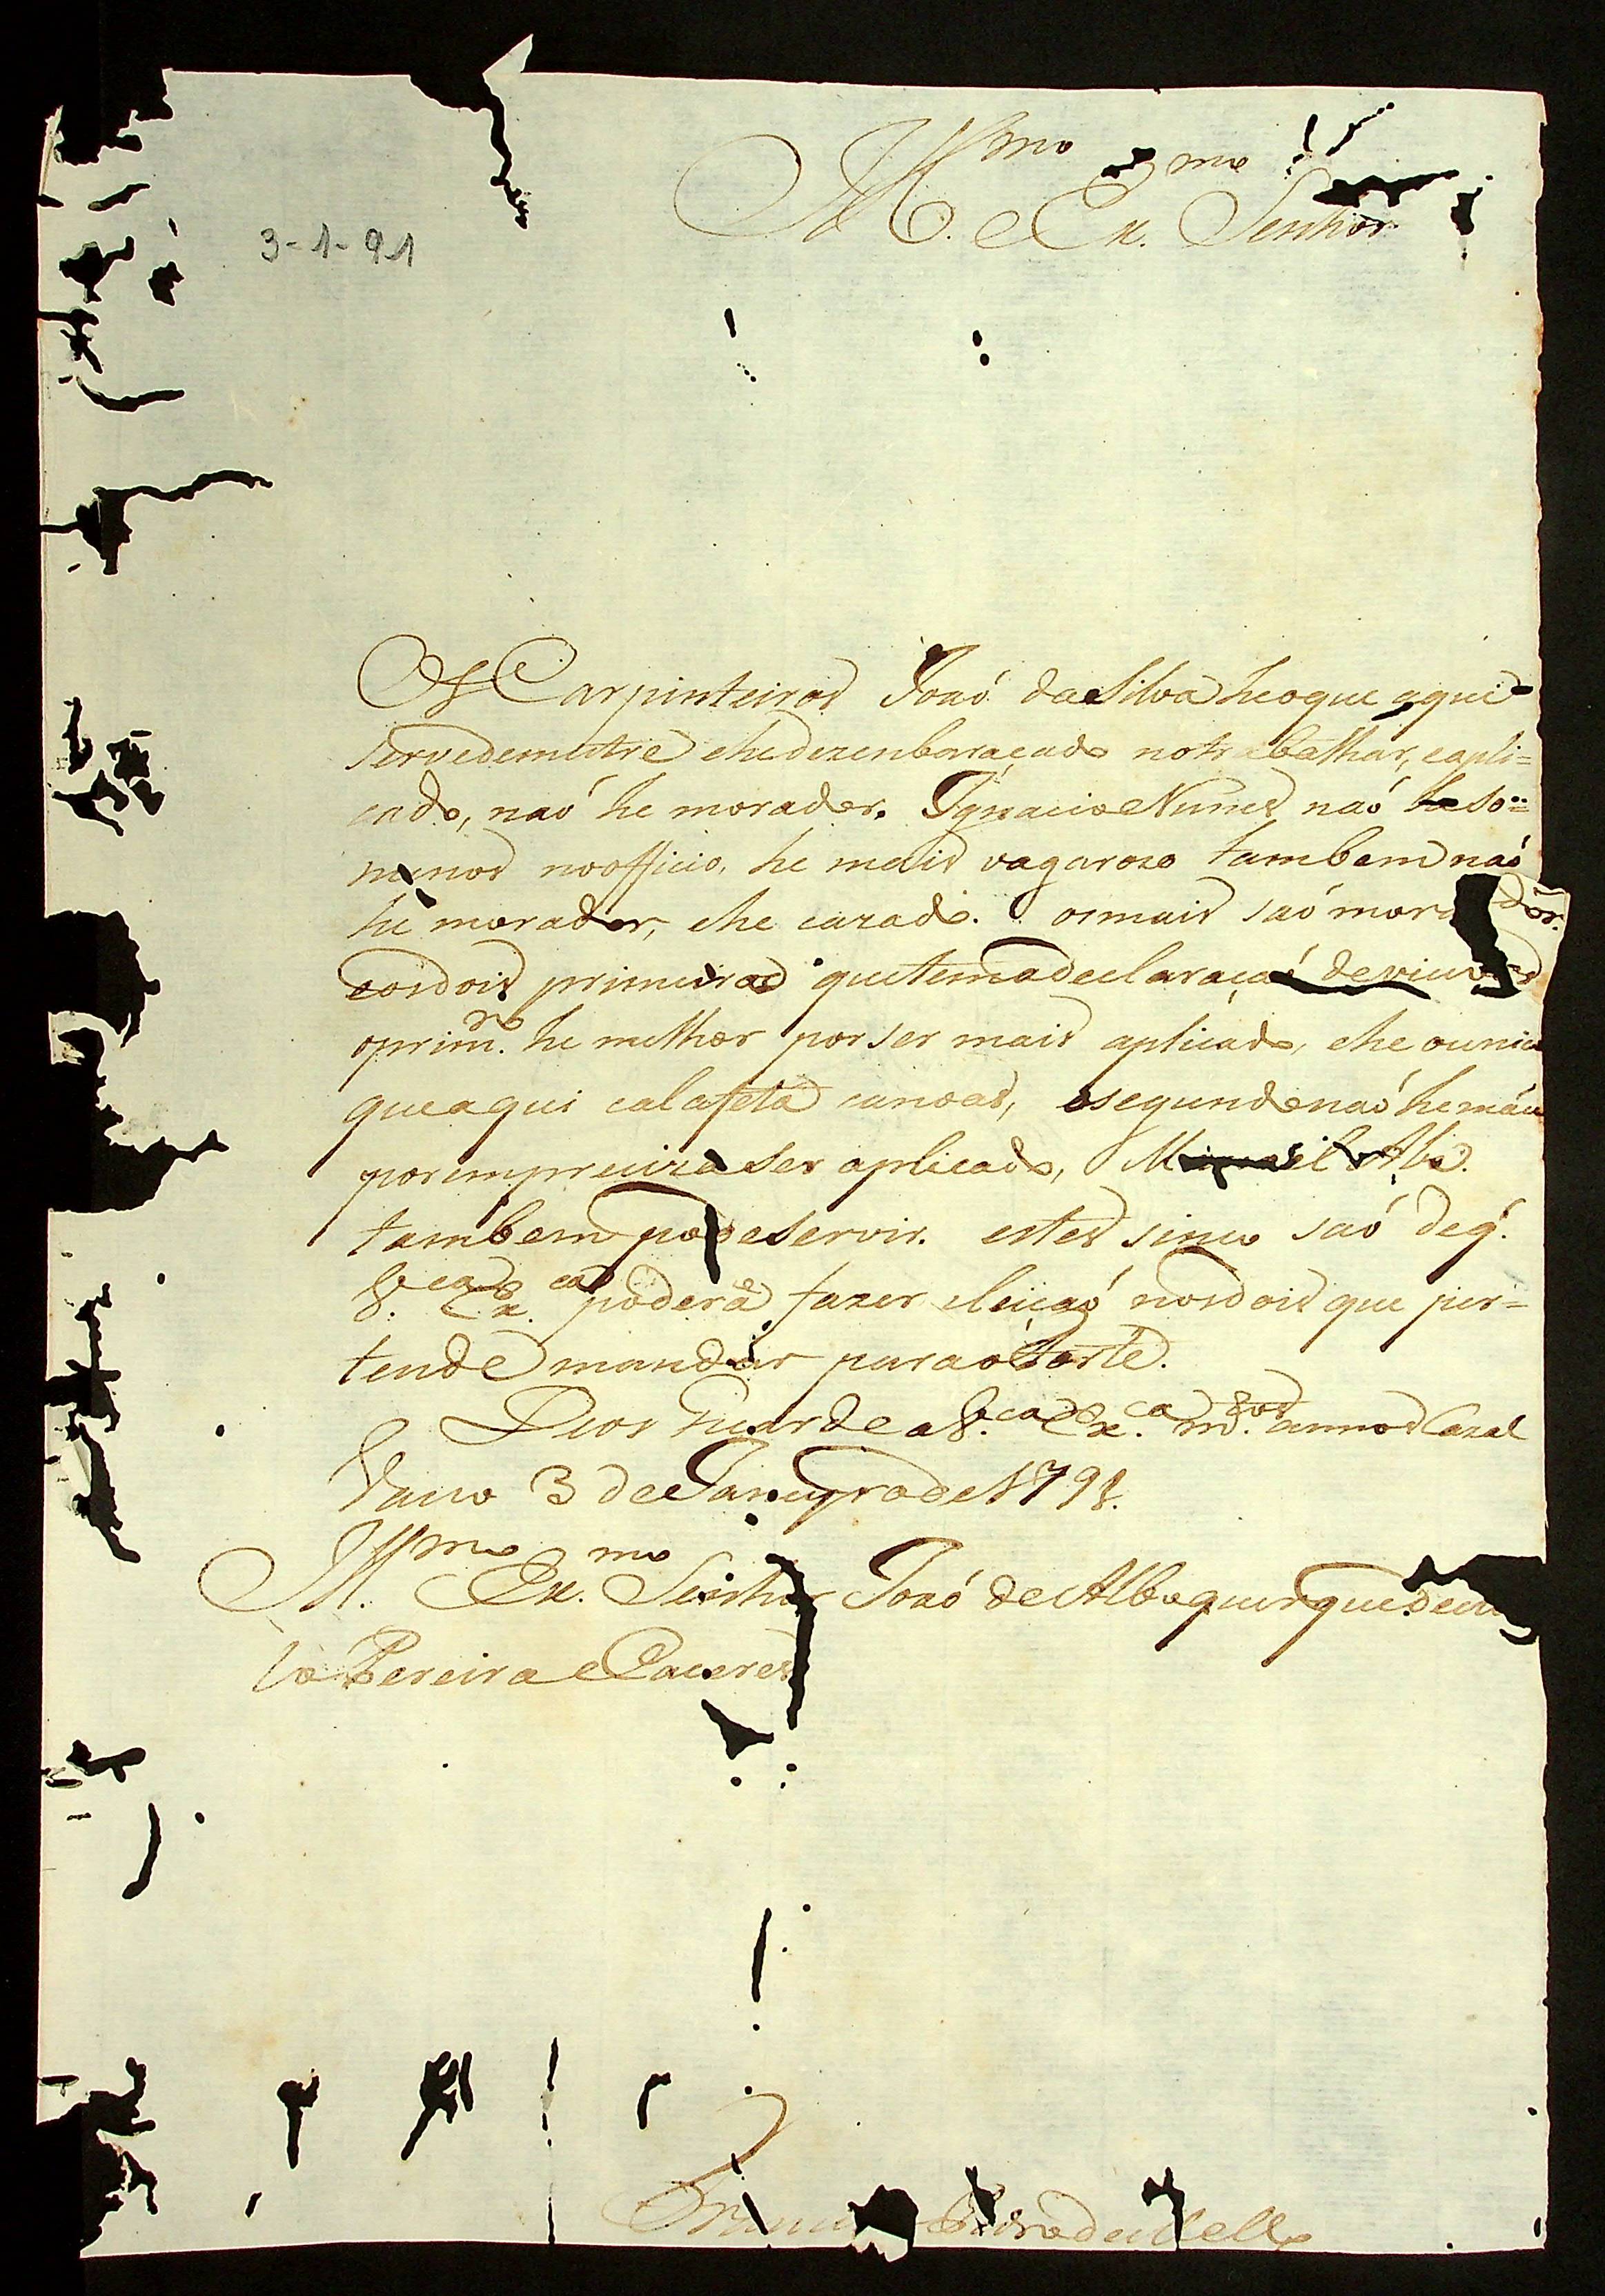 Ill.mo e Ex.mo Senhor
3-1-91
Os Carpinteiros Joaó da Silva he o que aqui
serve de mestre e he dezenbaraçado no trabalhar, e apli=
cado, naó he morador. Ignacio Nunes naó he so=
menos no officio, he mais vagarozo tambem naó
he morador, e he cazado. os mais saó morador.
e os dois primeiros que tem a declaraçaó de viuvos
o prim.ro he melhor por ser mais aplicado, e he o unico
que aqui calafeta canoas, o segundo naó he máu
por impreiza ser aplicado, Alz.
tambem pode servir. estes sinco saó de q.
V.ca Ex.ca poderá fazer eleiçaó nos dois que per=
tende mandar para o Forte.
Deos Guarde a V.ca Ex.ca m.tos annos Cazal
Vasco 3 de Janeyro de 1791.
Ill.mo Ex.mo Senhor Joaó de Albuquerque de
lo Pereira e Caceres
Pedro de Mello